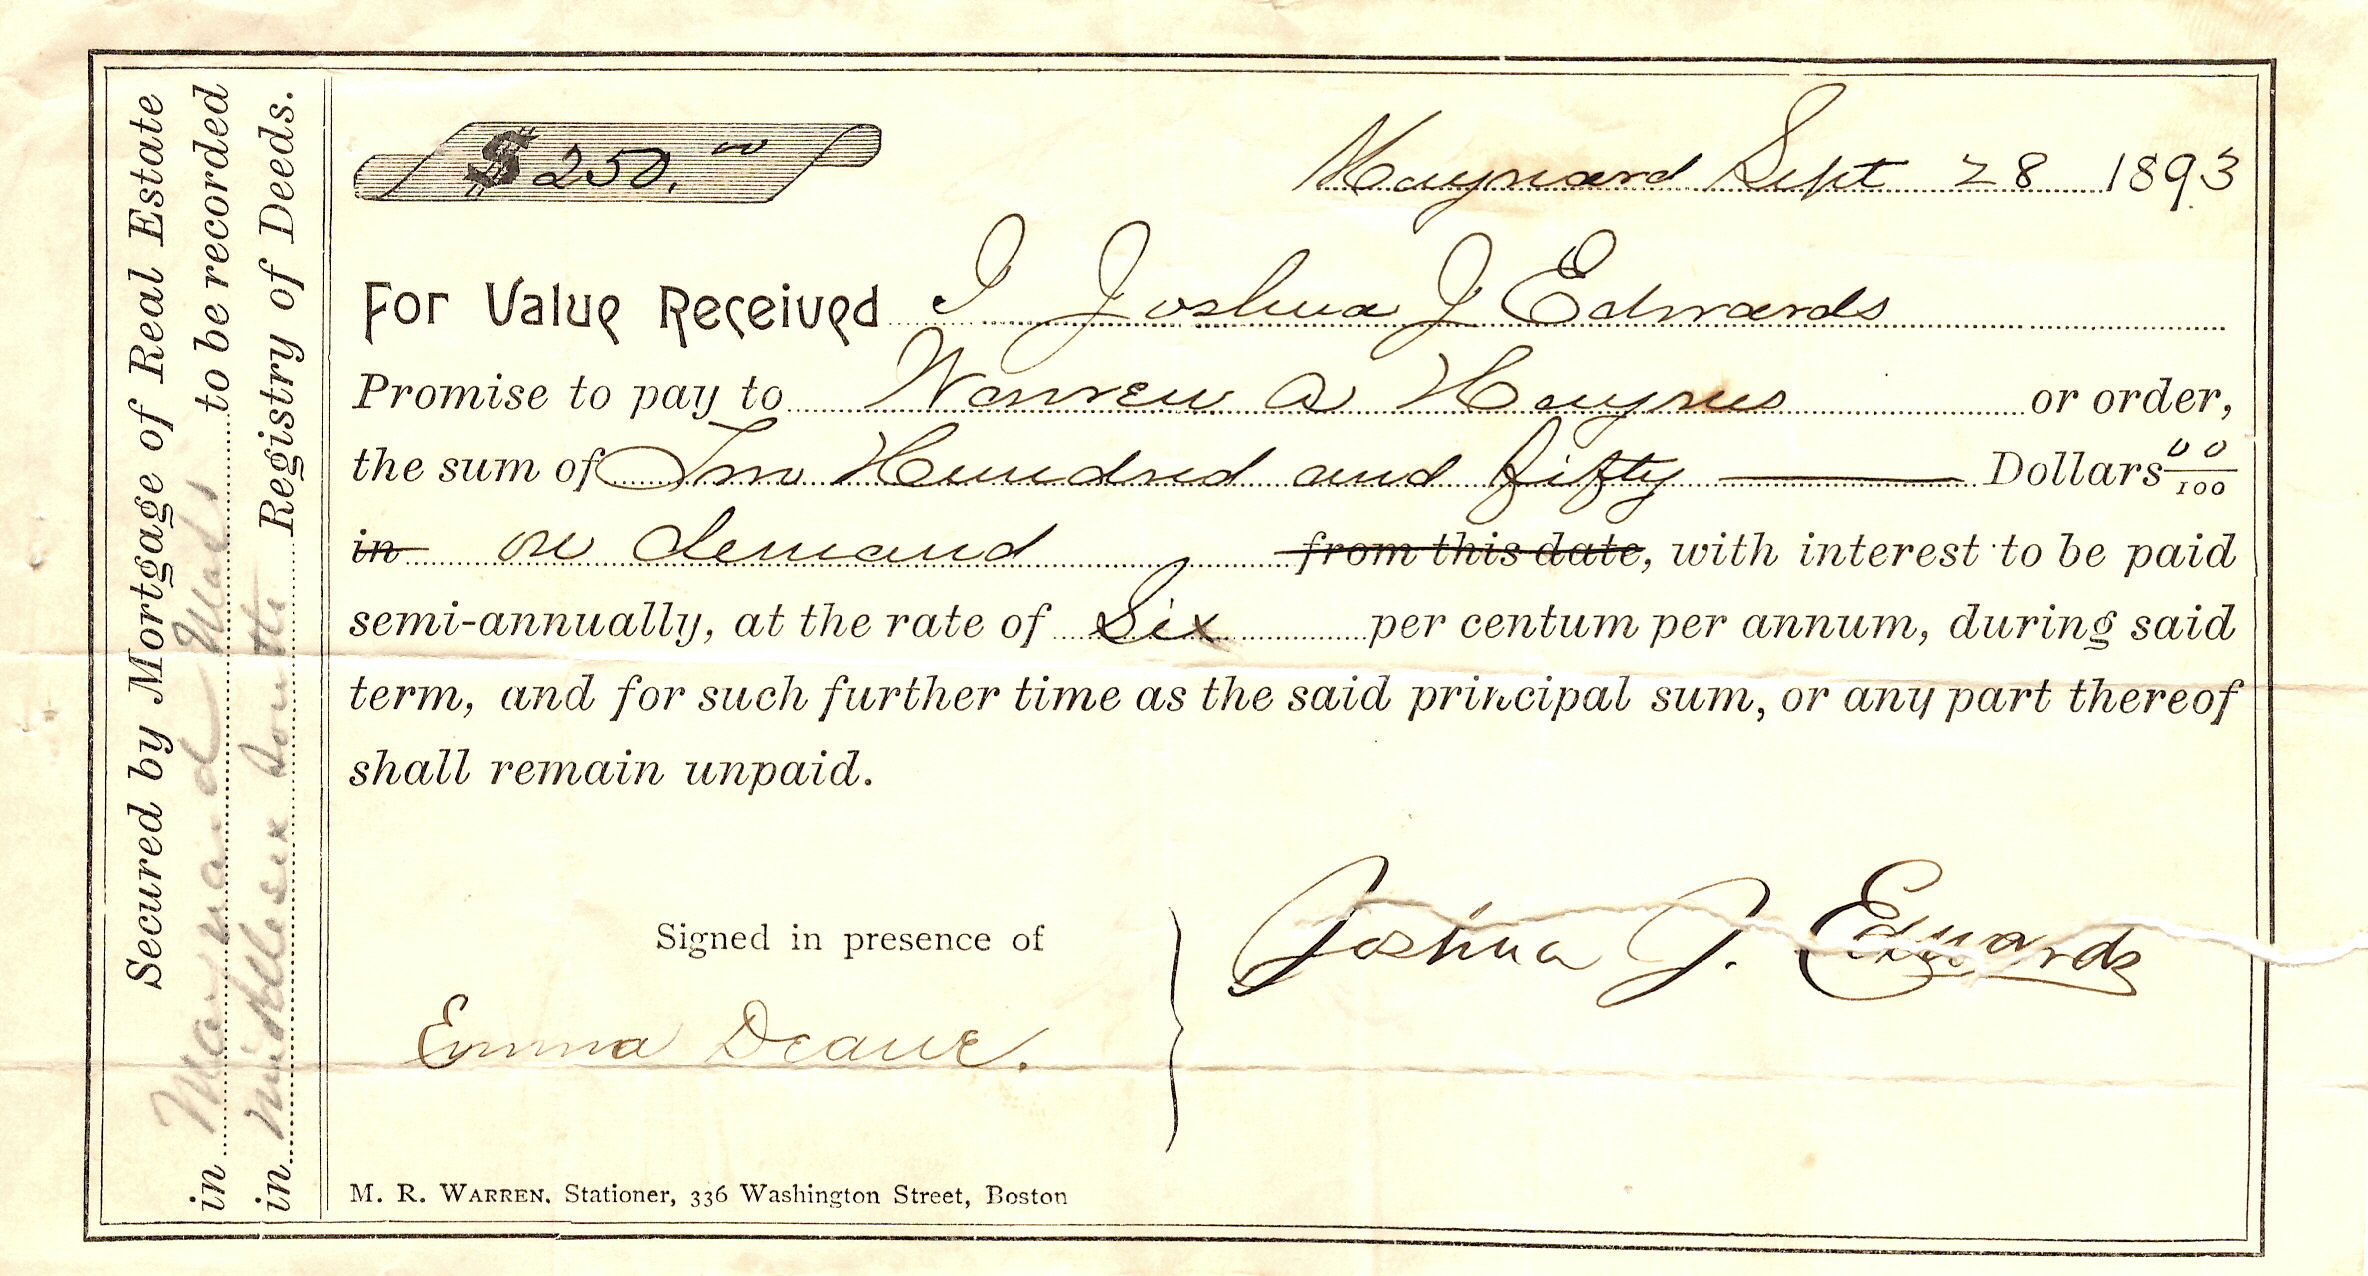 Secured by Mortgage of Real Estate
in Maynard Mass to be recorded
in Middlesex South Registry of Deeds.
$ 250.00
Maynard Sept 28 1893
For Value Received I Joshua J Edwards
Promise to pay to Warren A Haynes or order,
the sum of Two Hundred and fifty Dollars 00/100
in on demand from this date, with interest to be paid
semi-annually, at the rate of Six per centum per annum, during said
term, and for such further time as the said principal sum, or any part thereof
shall remain unpaid.
Signed in presence of
Joshua J. Edwards
Emma Deane.
M. R. WARREN, Stationer, 336 Washington Street, Boston